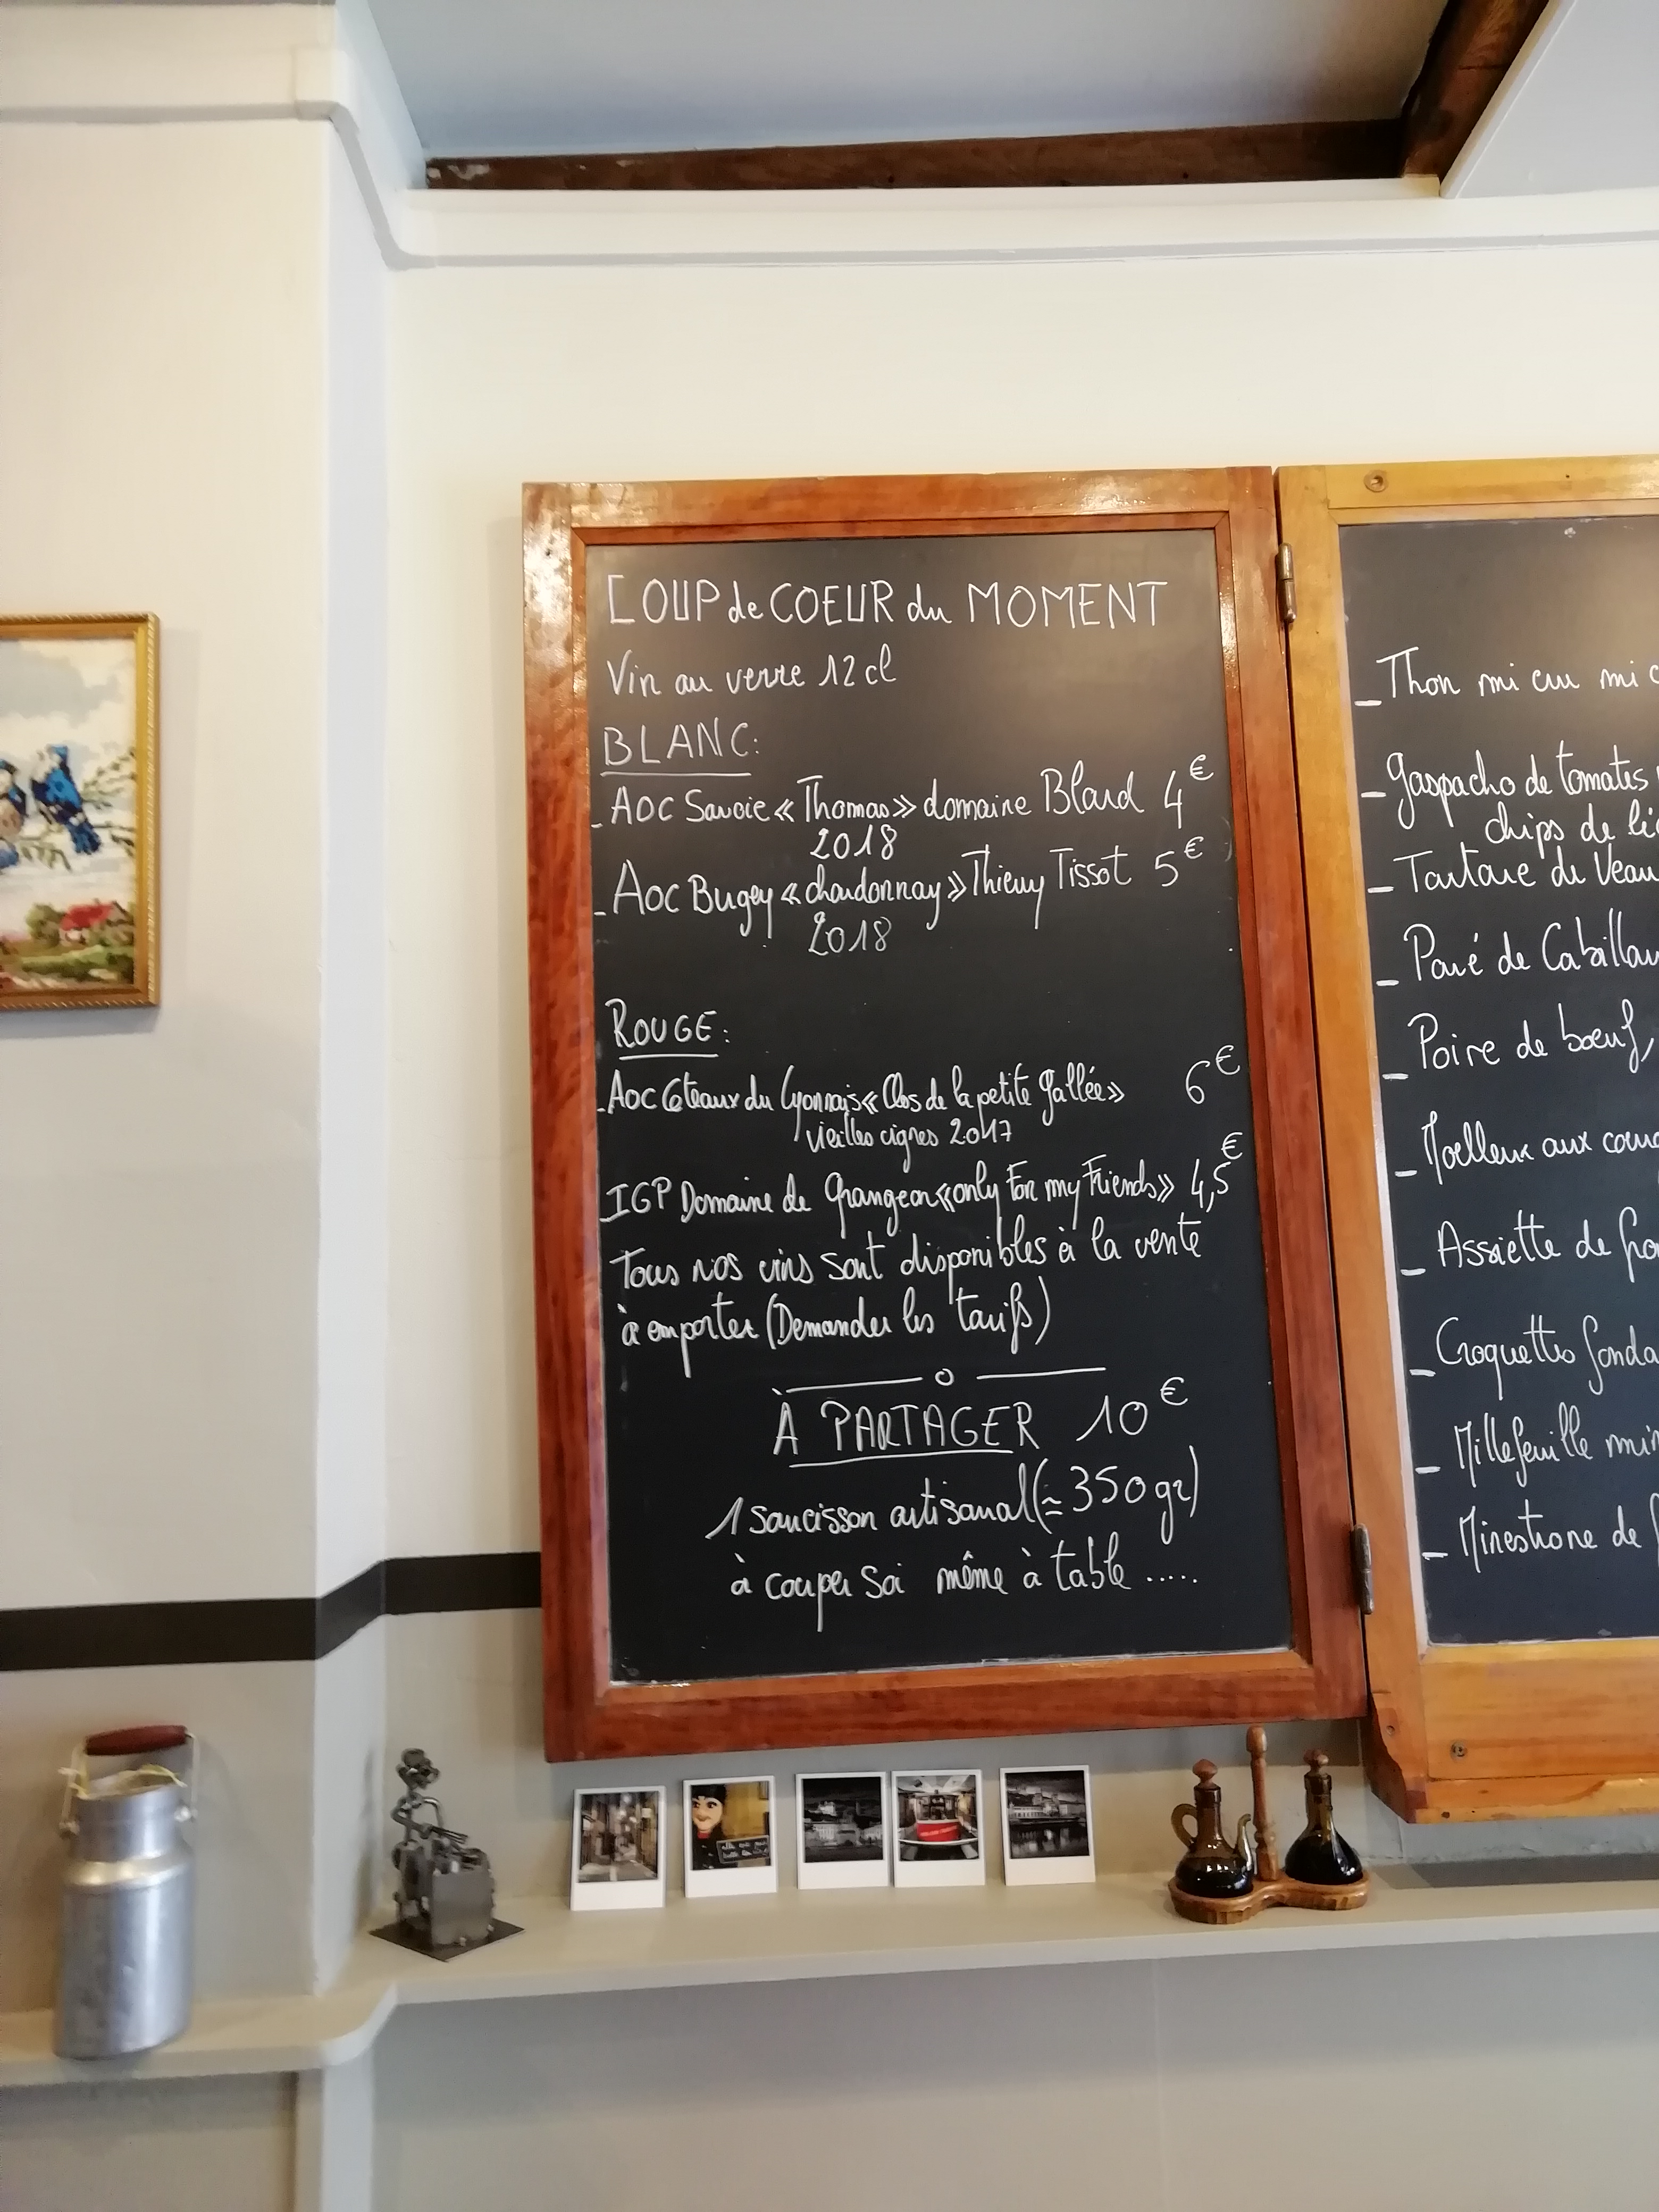 COUP de COEUR du MOMENT
Vin au verre 12 cl
BLANC:
- AOC Savoie « Thomas » domaine Blard 4€
2018
- AOC Bugey « chardonnay » Thierry Tissot 5€
2018
ROUGE:
- AOC Coteaux du Lyonnais « Clos de la petite gallée » 6€
vieilles vignes 2017
IGP Domaine de Grangeon « only For my Friends » 4,5€
Tous nos vins sont disponibles à la vente
à emporter (Demander les tarifs)
À PARTAGER 10€
1 saucisson artisanal (≃ 350 gr)
à couper soi même à table .....
- Thon mi cuu mi c
- Gaspacho de tomates
chips de
- Tartare de Veau
- Pavé de Cabillau
- Poire de bœuf,
- Moelleux aux
- Assiette de fro
- Croquettes fonda
- Millefeuille
- Minestrone de